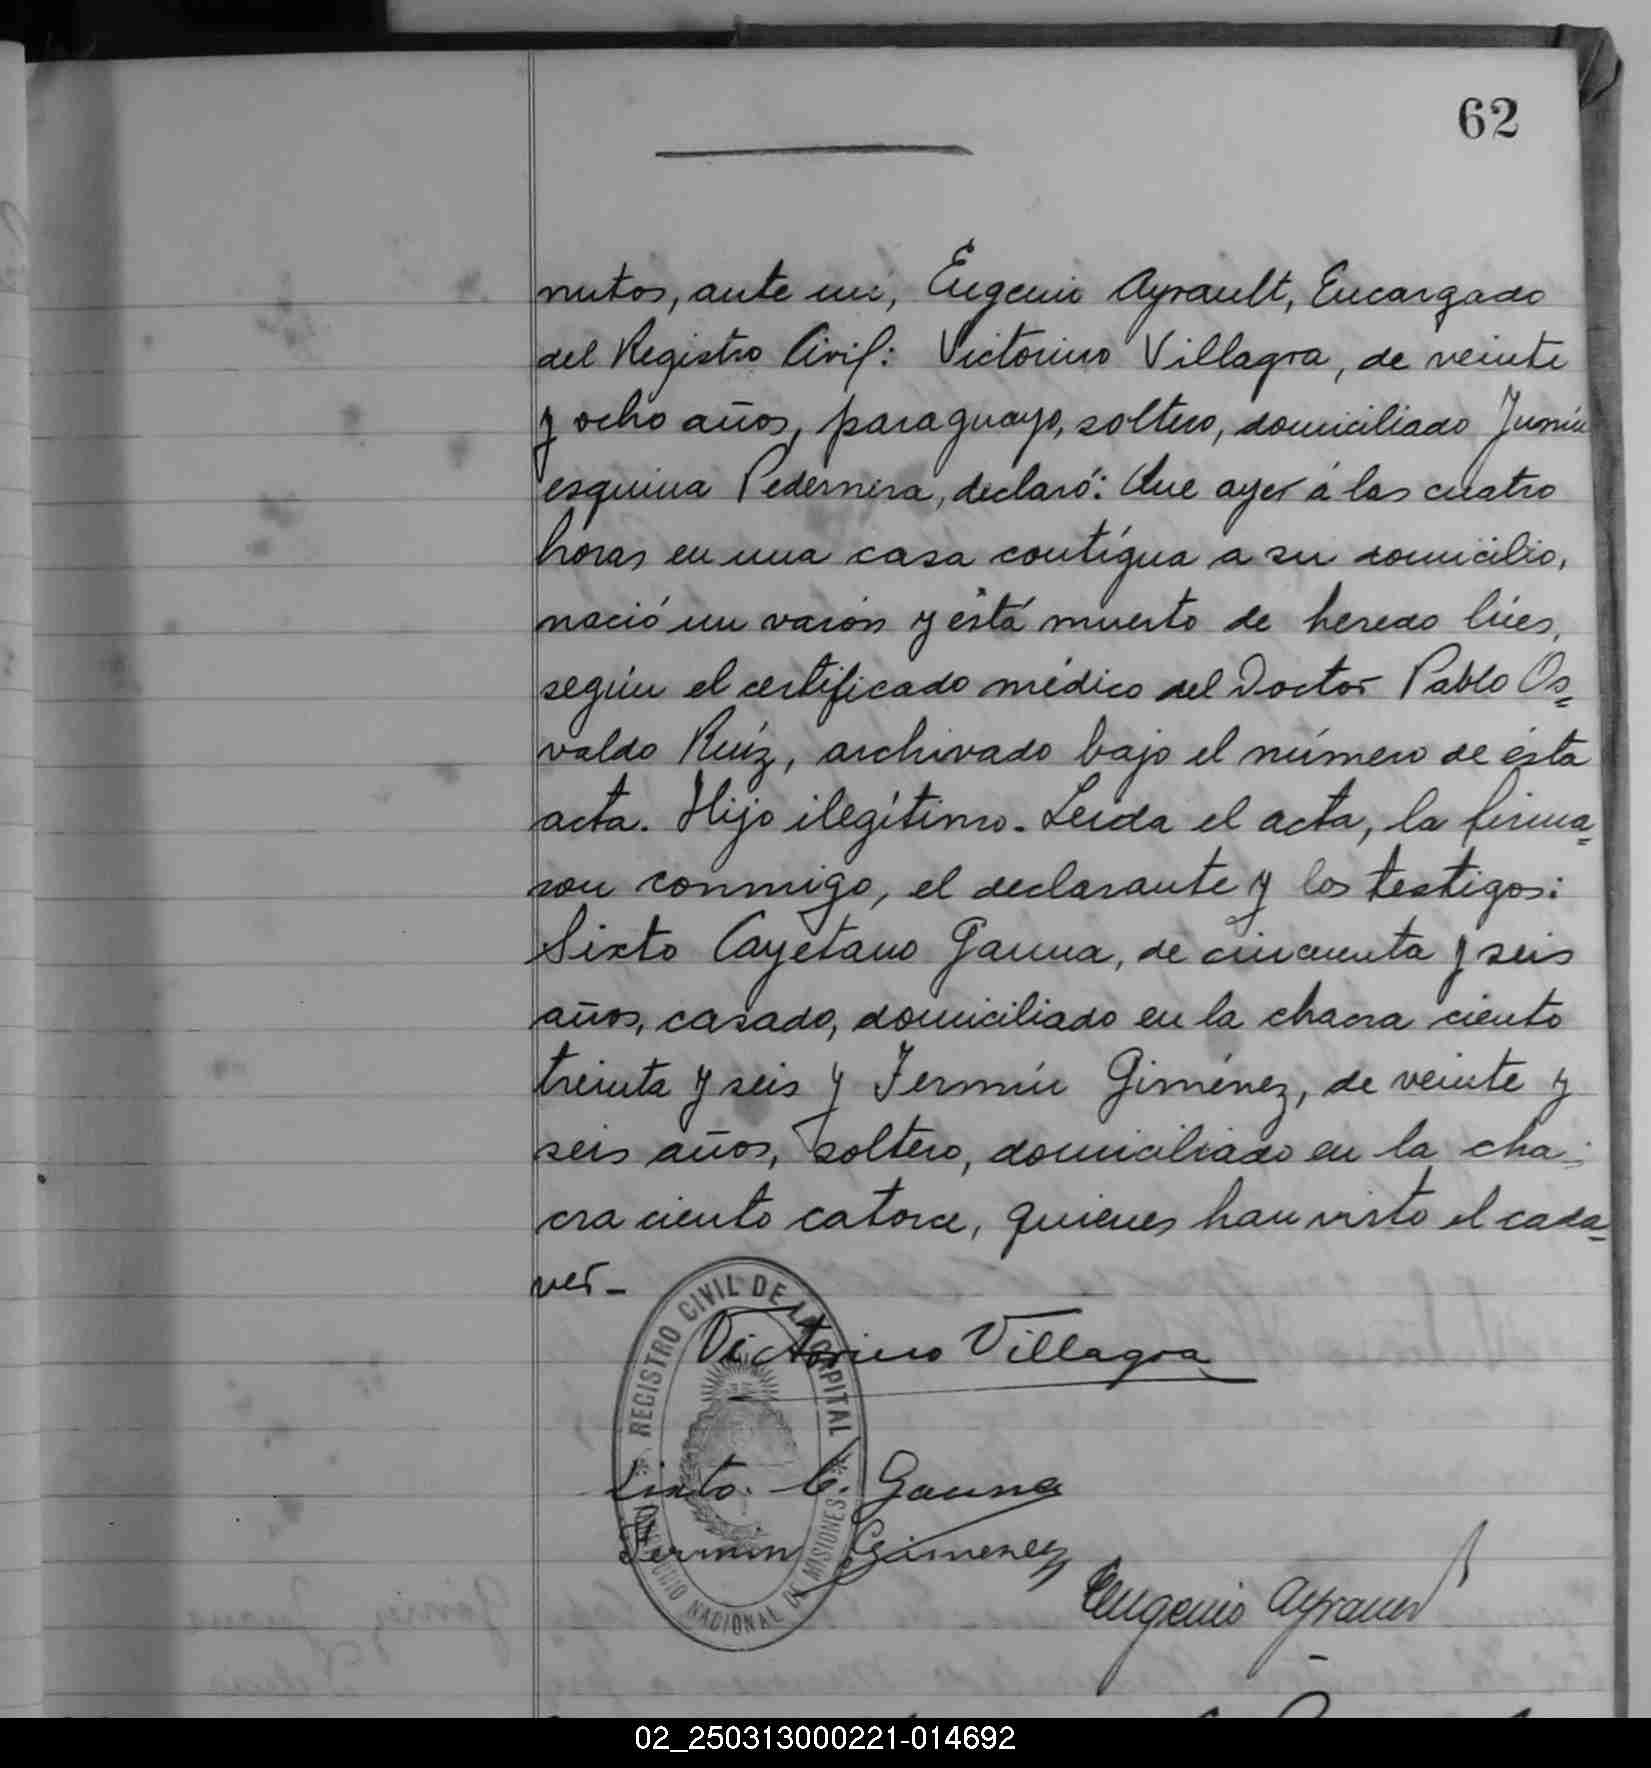 62
nutos, ante mi, Eugenio Ayrault, Encargado
del Registro Civil: Victorino Villagra, de veinte
y ocho años, paraguayo, soltero, domiciliado Junín
esquina Pedernera, declaró: Que ayer á las cuatro
horas en una casa contígua a su domicilio,
nació un varón y ésta muerto de heredo lúes,
según el certificado médico del Doctor Pablo Os=
valdo Ruíz, archivado bajo el número de ésta
acta. Hijo ilegítimo. Leida el acta, la firma=
ron conmigo, el declarante y los testigos:
Sixto Cayetano Gauna, de cincuenta y seis
años, casado, domiciliado en la chacra ciento
treinta y seis y Fermín Giménez, de veinte y
seis años, soltero, domiciliado en la cha-
cra ciento catorce, quienes han visto el cada=
ver.-
REGISTRO CIVIL DE LA CAPITAL
Victorino Villagra
Sixto. C. Gauna
Fermin Gimenez
NACIONAL DE MISIONES
Eugenio Ayrault
02_250313000221-014692